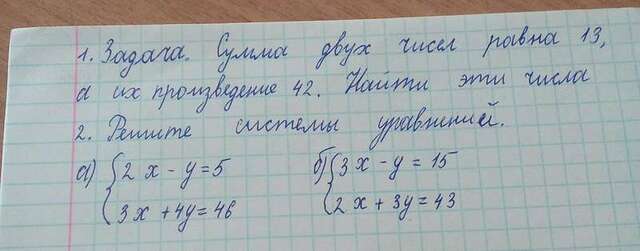 1. Задача. Сумма двух чисел равна 13,
а их произведение 42. Найти эти числа
2. Решите системы уравнений.
а) { 2x - y = 5 б) { 3x - y = 15
3x + 4y = 46 2x + 3y = 43